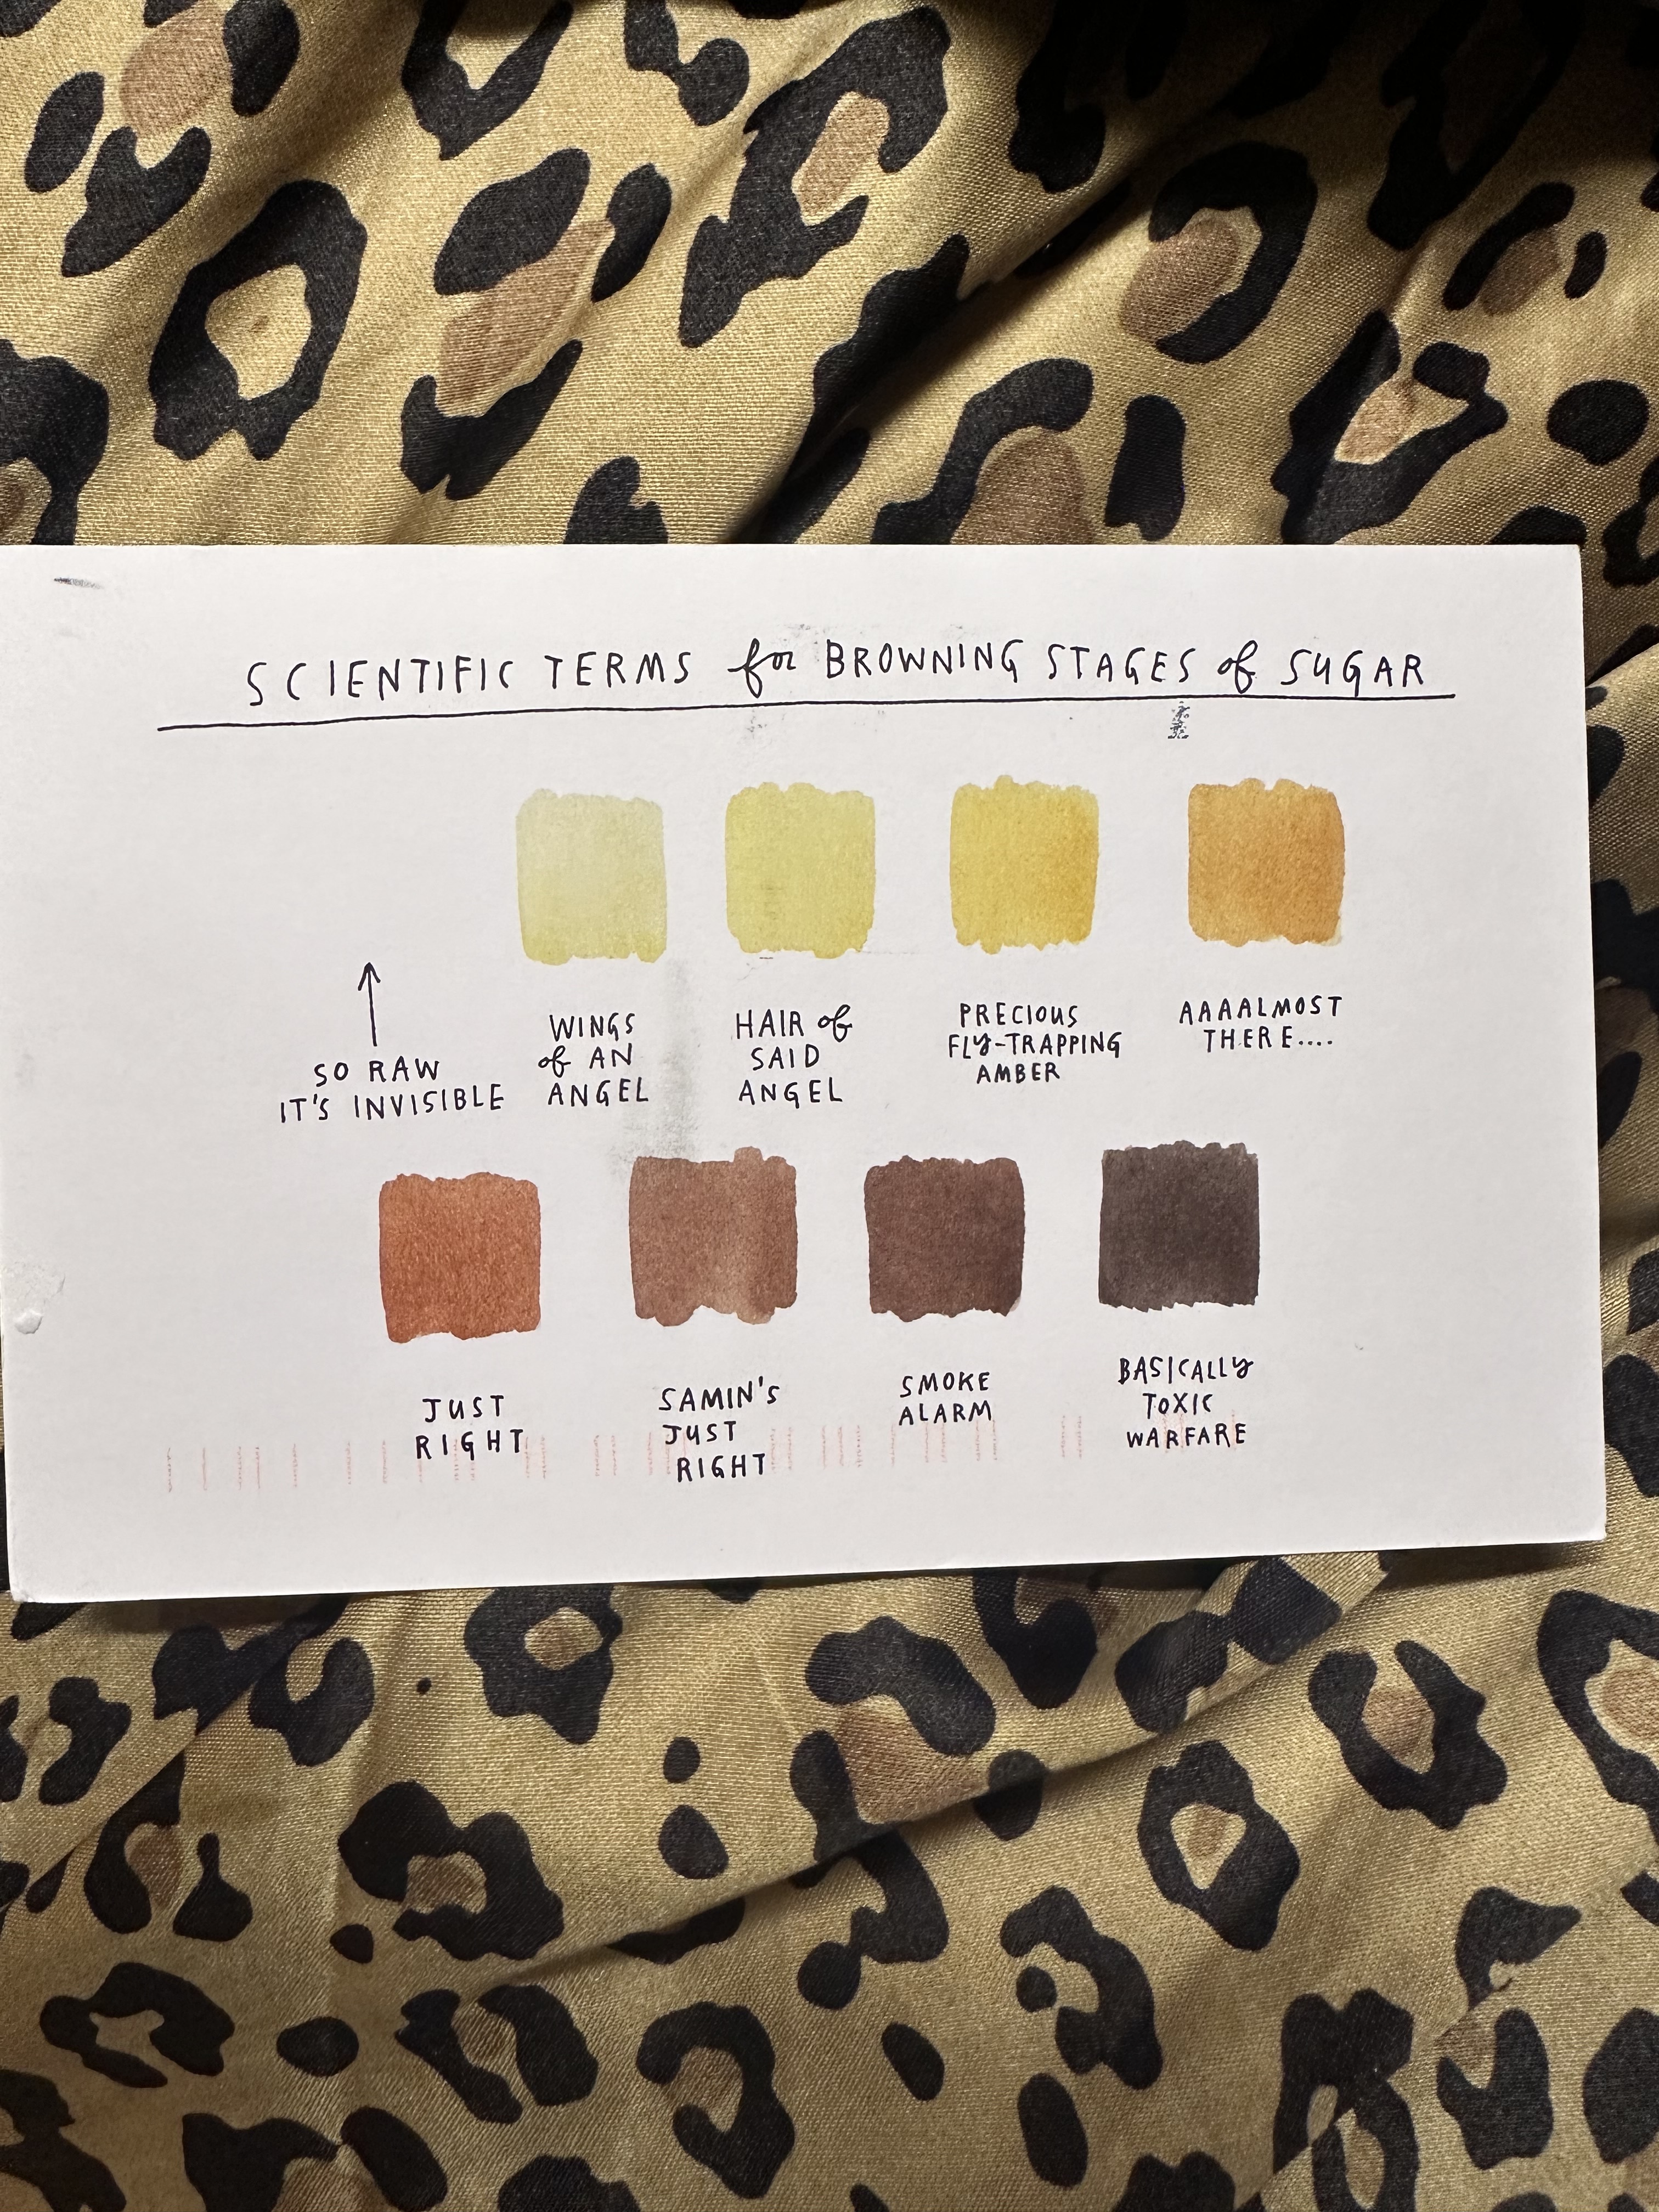 SCIENTIFIC TERMS for BROWNING STAGES of SUGAR
SO RAW
IT'S INVISIBLE
WINGS
of AN
ANGEL
HAIR of
SAID
ANGEL
PRECIOUS
FLY-TRAPPING
AMBER
AAAALMOST
THERE....
JUST
RIGHT
SAMIN'S
JUST
RIGHT
SMOKE
ALARM
BASICALLY
TOXIC
WARFARE